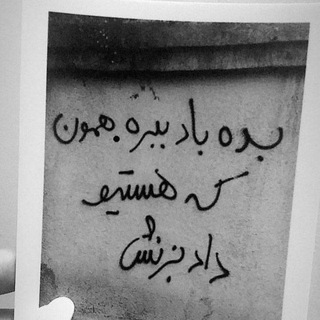 بده باد ببره همون
که هستیو
داد بزنش